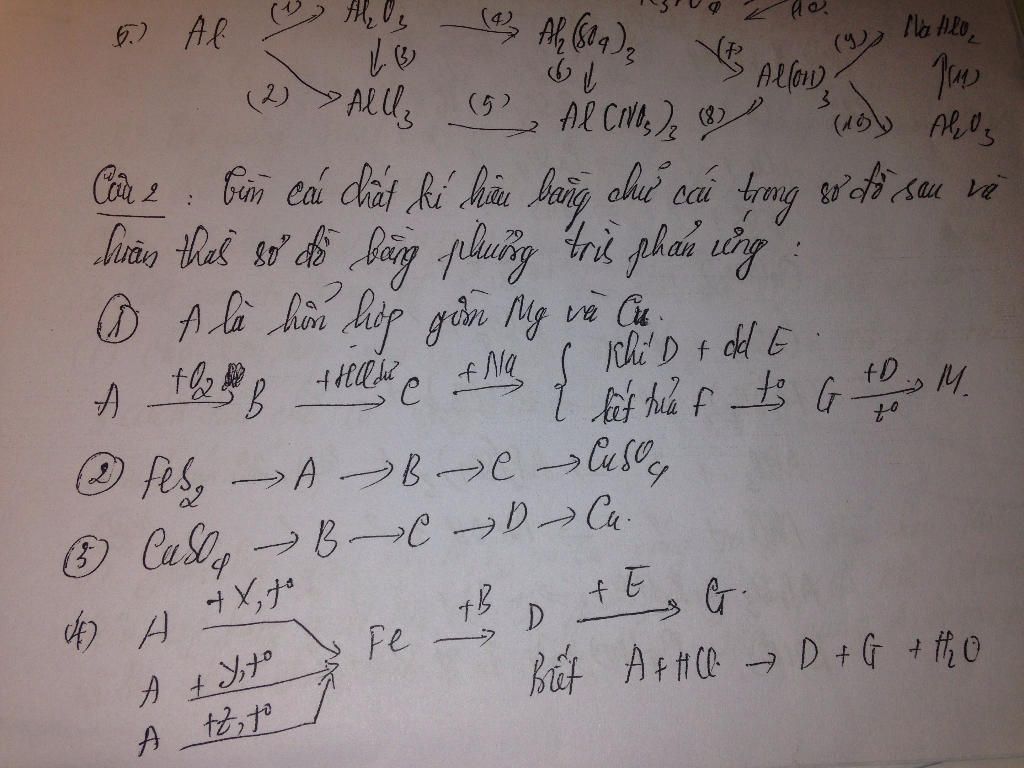 5.) Al (1) Al2O3 (4) Al2(SO4)3 (7) Al(OH)3 (9) NaAlO2
(3) (6) (11)
(2) AlCl3 (5) Al(NO3)3 (8) (10) Al2O3
Câu 2 : Tìm các chất kí hiệu bằng chữ cái trong sơ đồ sau và
hoàn thành sơ đồ bằng phương trình phản ứng :
① A là hỗn hợp gồm Mg và Cu.
A +O2→ B +HCl dư→ C +Na→ { Khí D + dd E
kết tủa F t°→ G +D t°→ M.
② FeS2 → A → B → C → CuSO4
③ CuSO4 → B → C → D → Cu.
4) A +X,t°→ Fe +B→ D +E→ G.
A +Y,t°→
A +Z,t°→
Biết A + HCl → D + G + H2O